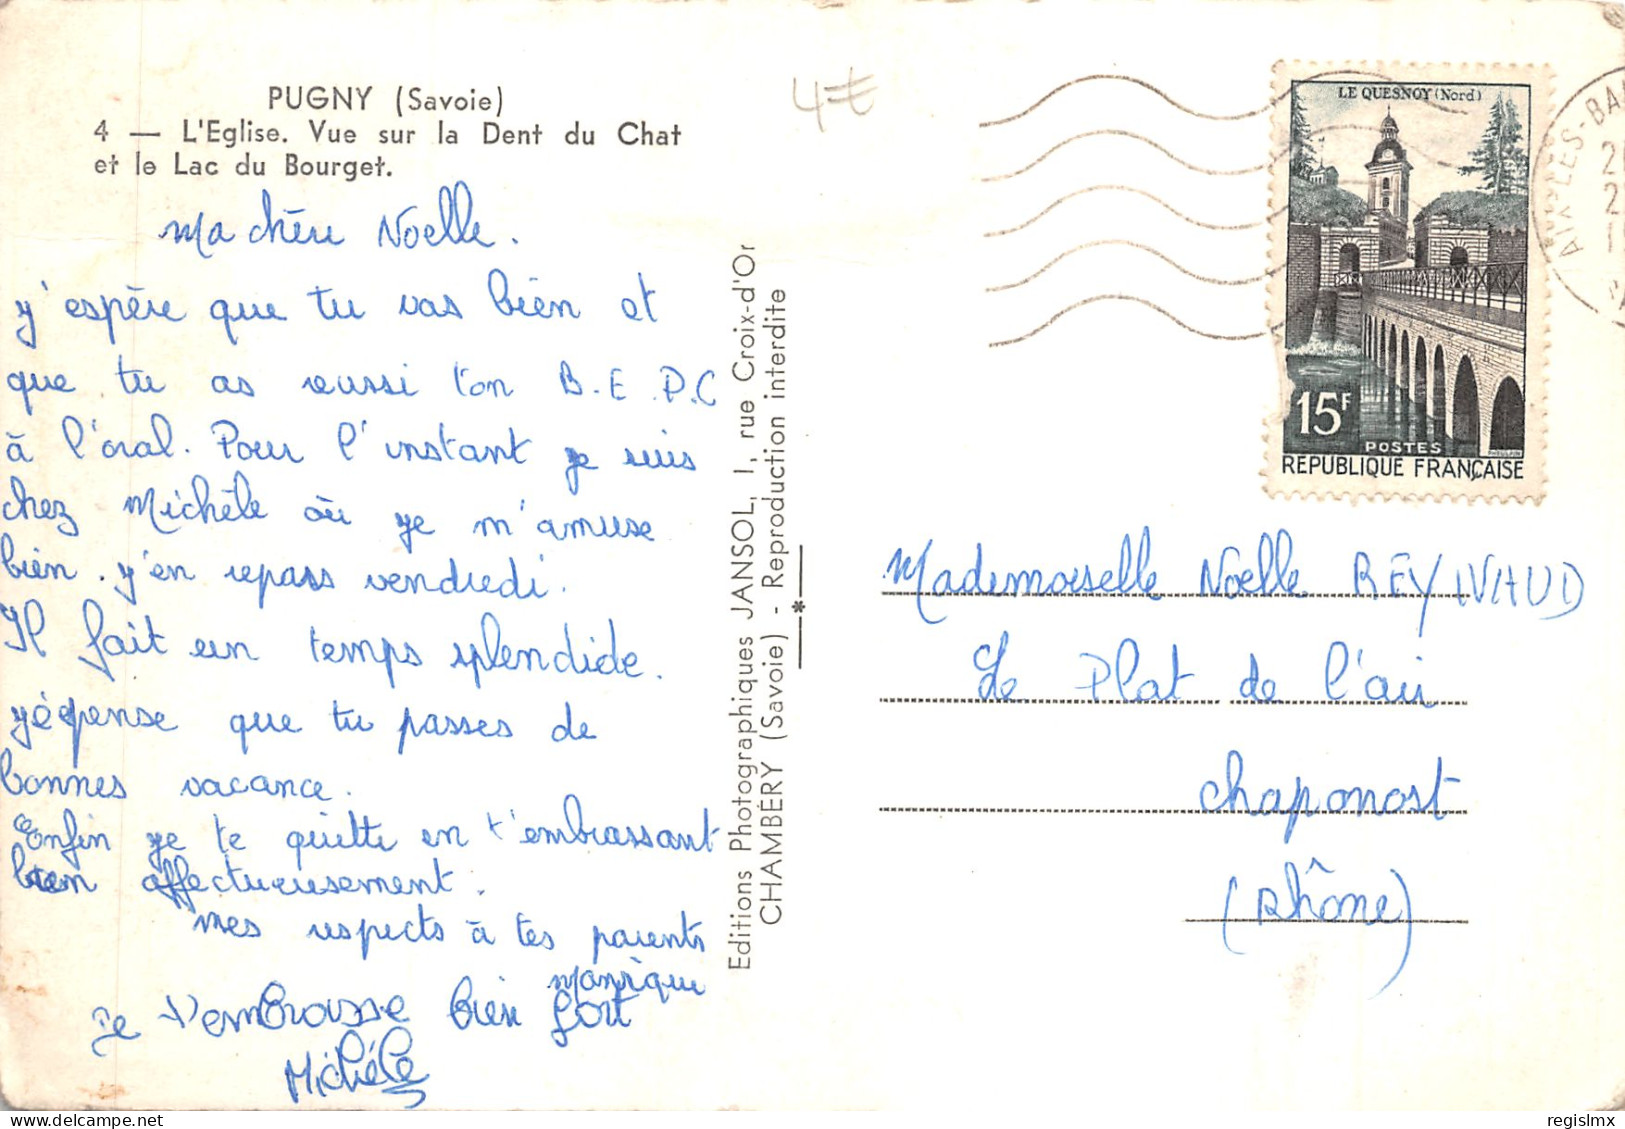 PUGNY (Savoie)
4 — L'Eglise. Vue sur la Dent du Chat
et le Lac du Bourget.
Ma chère Noelle.
j'espère que tu vas bien et
que tu as reussi ton B.E.P.C
à l'oral. Pour l'instant je suis
chez Michèle où je m'amuse
bien. j'en repass vendredi.
Il fait un temps splendide.
j'éspense que tu passes de
bonnes vacance.
Enfin je te quitte en t'embrassant
bien affectueusement.
mes respects à tes parents
Monique
Je t'embrasse bien fort
Michèle
Editions Photographiques JANSOL, 1, rue Croix-d'Or
CHAMBÉRY (Savoie) - Reproduction interdite
*
4€
LE QUESNOY (Nord)
15F
POSTES
REPUBLIQUE FRANÇAISE
AIX-LES-BA
Mademoiselle Noelle REYNAUD
Le Plat de l'air
Chaponost
(Rhône)
regislmx